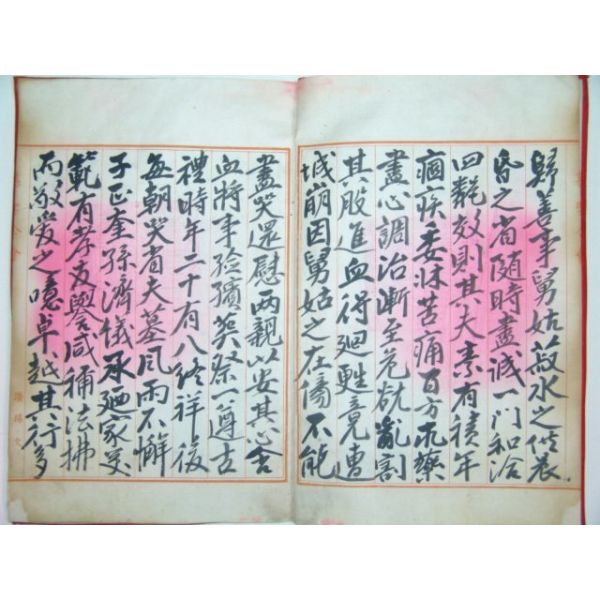 歸善事舅姑菽水之供晨
昏之省隨時盡誠一門和洽
四藝效則其夫素有積年
痼疾委牀苦痛百方求藥
盡心調治漸至危就亂割
其股進血得廻甦竟遭
城崩因舅姑之在傍不能
盡哭還慰兩親以安其心含
血將事殮殯葬祭一遵古
禮時年二十有八終祥後
每朝哭省夫墓風雨不懈
子正奎孫濟儀承廻家美
範有孝友譽咸補法拂
而敬愛之噫卓越其行多